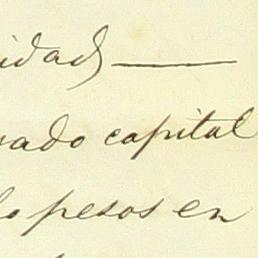 idad
sado capital
lo pesos en